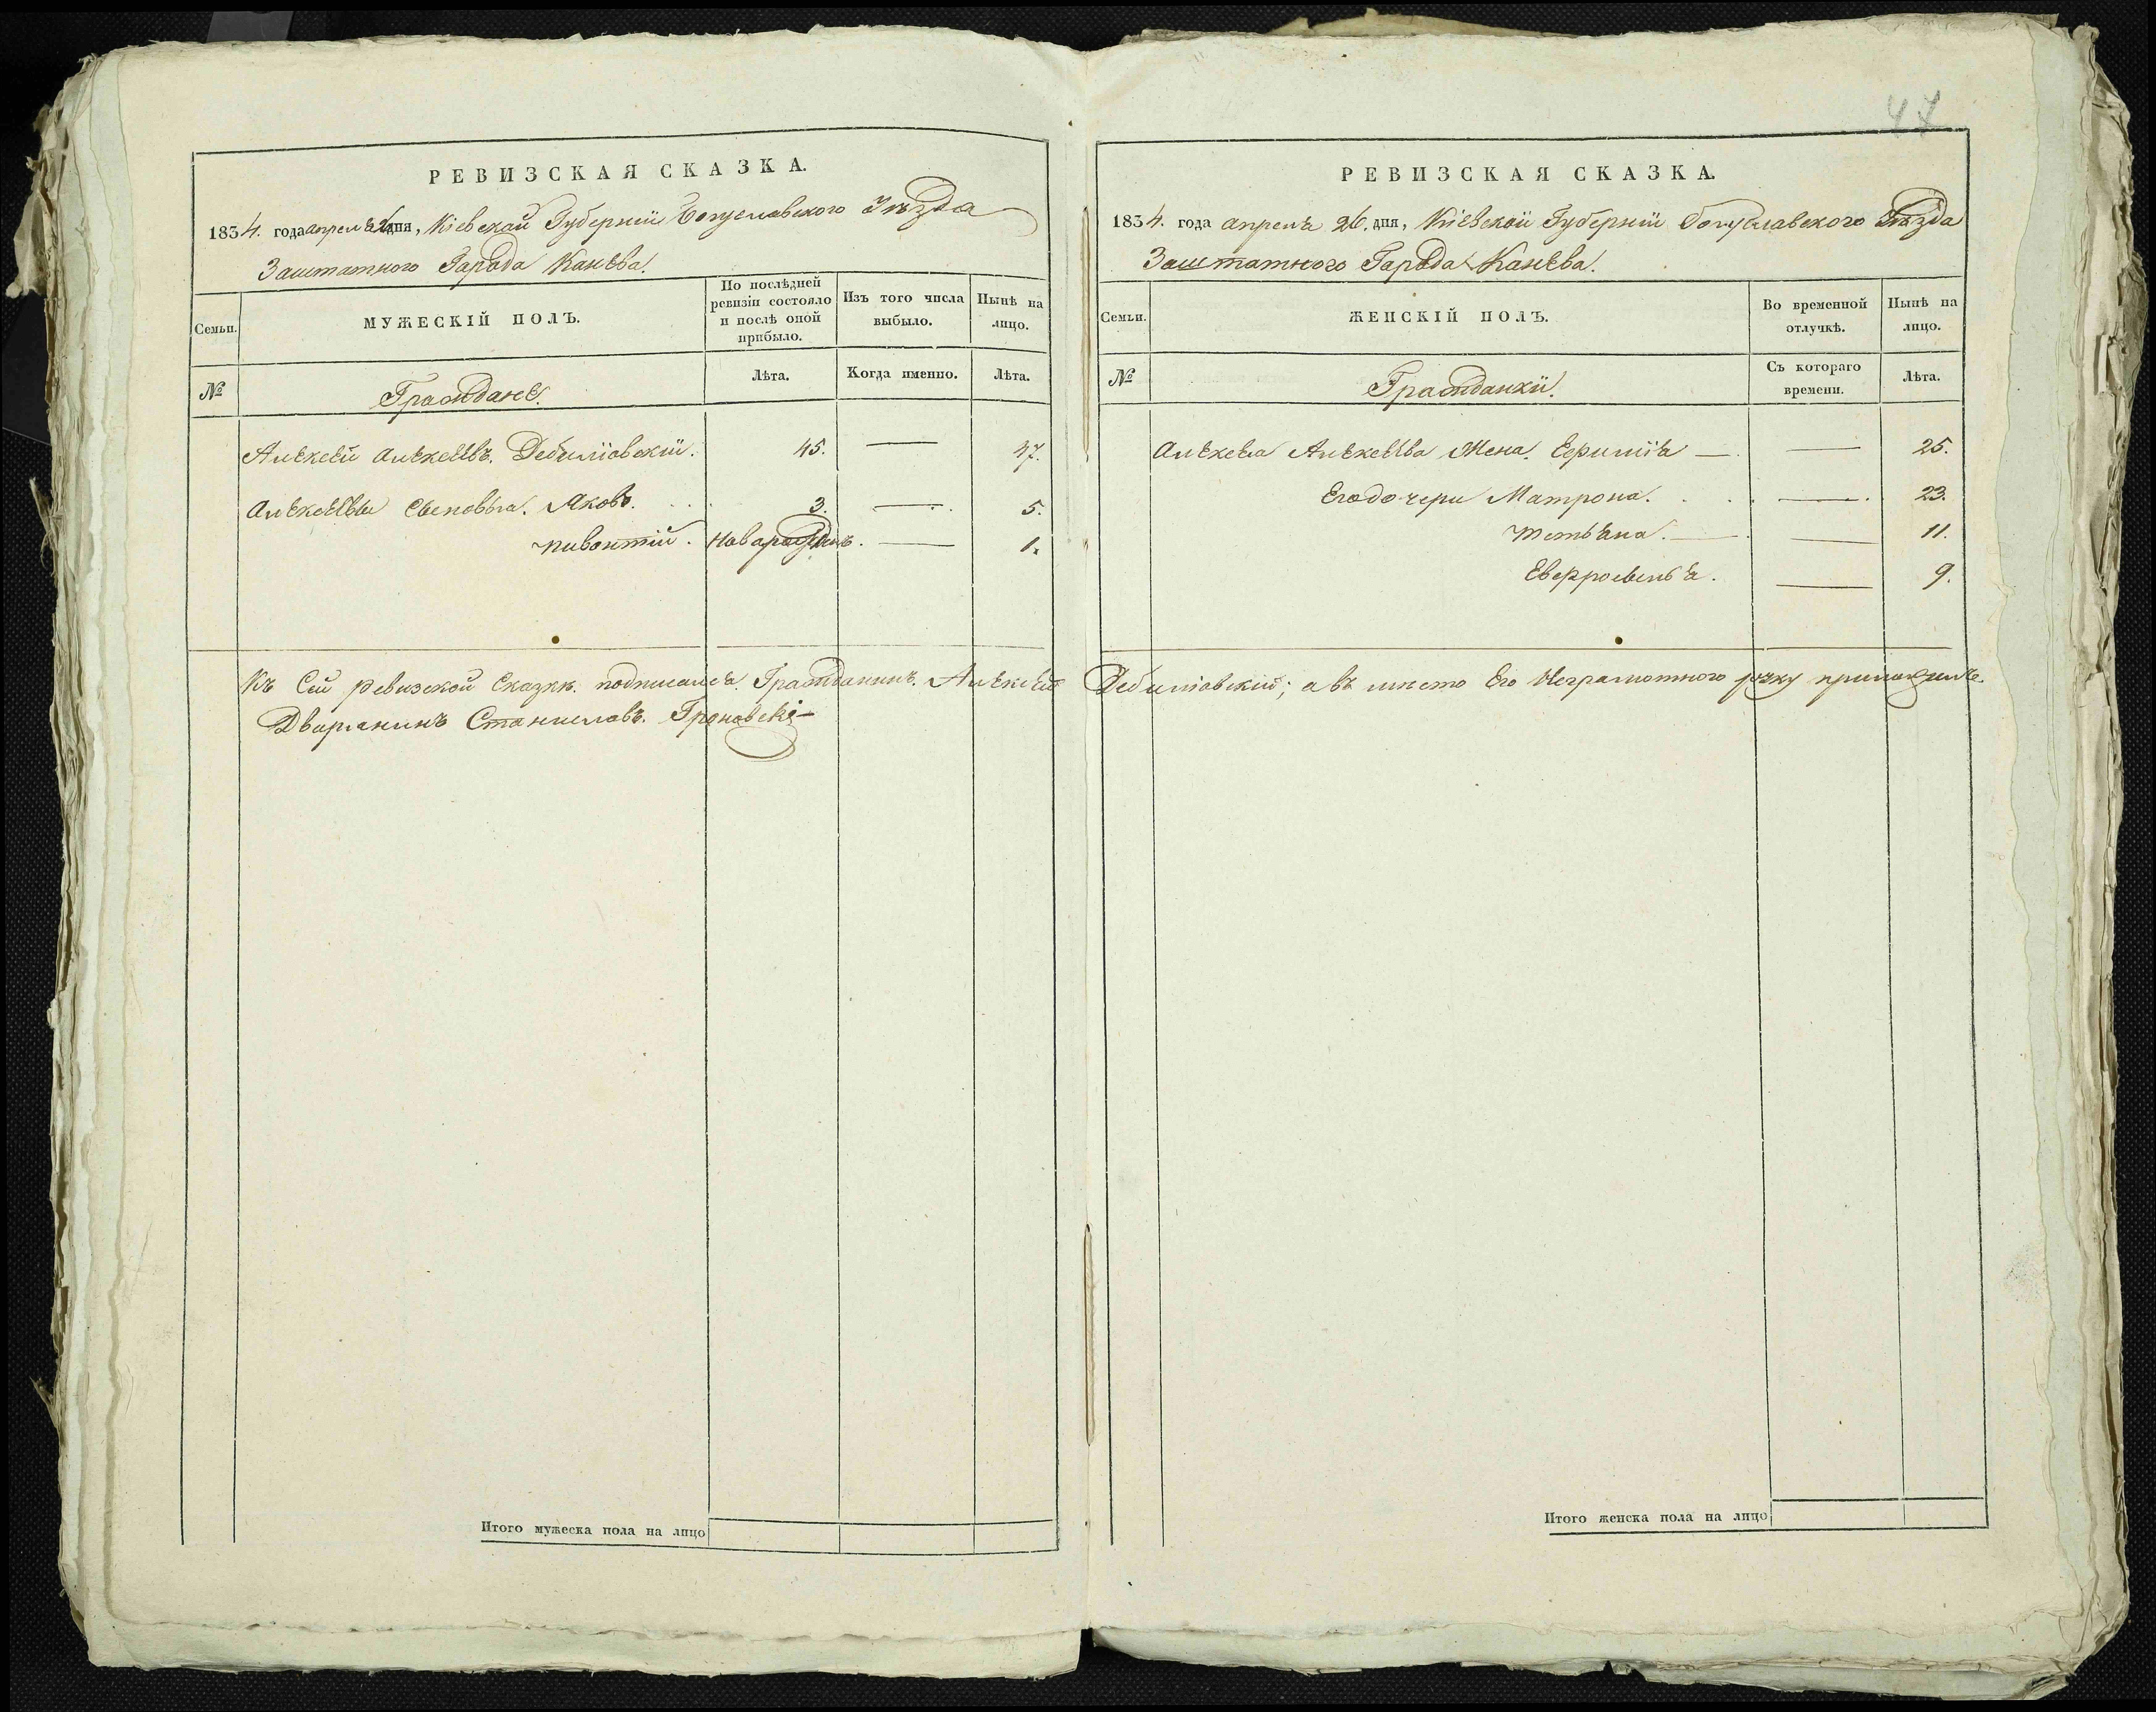 47
РЕВИЗСКАЯ СКАЗКА.
1834. года апреля 26 дня, Кіевской Губерніи Богуславского Уѣзда
Заштатного Города Канева.
Семьи.
МУЖЕСКІЙ ПОЛЪ.
По послѣдней ревизіи состояло и послѣ оной прибыло.
Изъ того числа выбыло.
Нынѣ на лицо.
№
Граждане.
Лѣта.
Когда именно.
Лѣта.
Алексей Алексеевъ. 45. — 47.
Алексеевы Сыновья. Яковъ. 3. — 5.
Новарожденъ. — 1.
Къ Сей ревизской Сказкѣ подписался Гражданинъ. Алексей
Дворянинъ Станиславъ.
Итого мужеска пола на лицо
РЕВИЗСКАЯ СКАЗКА.
1834. года апреля 26. дня, Кіевской Губерніи Богуславского Уѣзда
Заштатного Города Канева.
Семьи.
ЖЕНСКІЙ ПОЛЪ.
Во временной отлучкѣ.
Нынѣ на лицо.
№
Гражданки.
Съ котораго времени.
Лѣта.
Алексея Алексеева Жена. — 25.
Его дочери Матрона. — 23.
Тетьяна. — 11.
— 9.
а въ место Его Неграмотного руку приложилъ
Итого женска пола на лицо